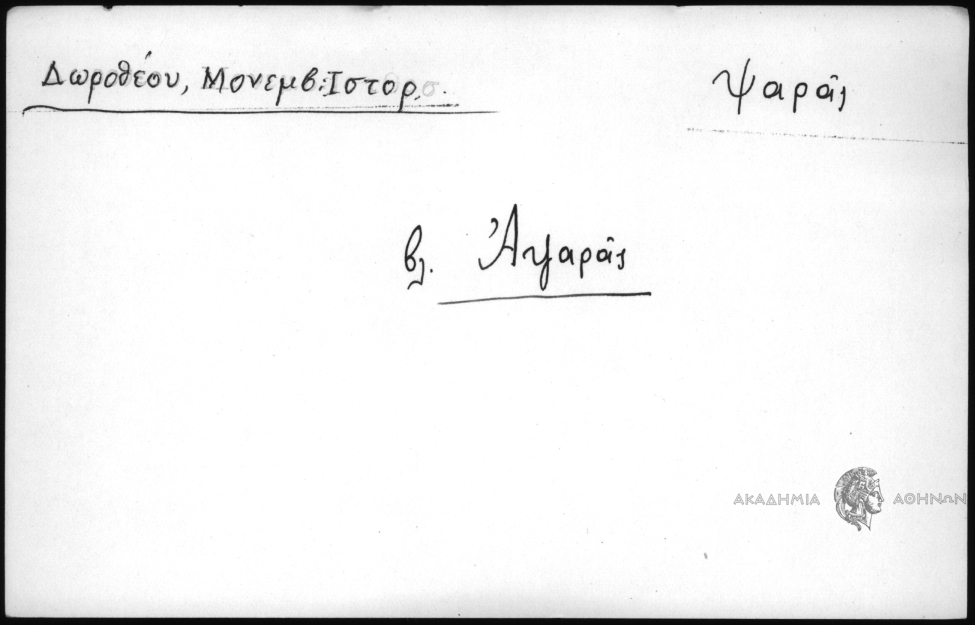 Δωροθέου, Μονεμβ. Ιστορ.
Ψαρᾶς
βλ. Ἀψαρᾶς
ΑΚΑΔΗΜΙΑ ΑΘΗΝΩΝ